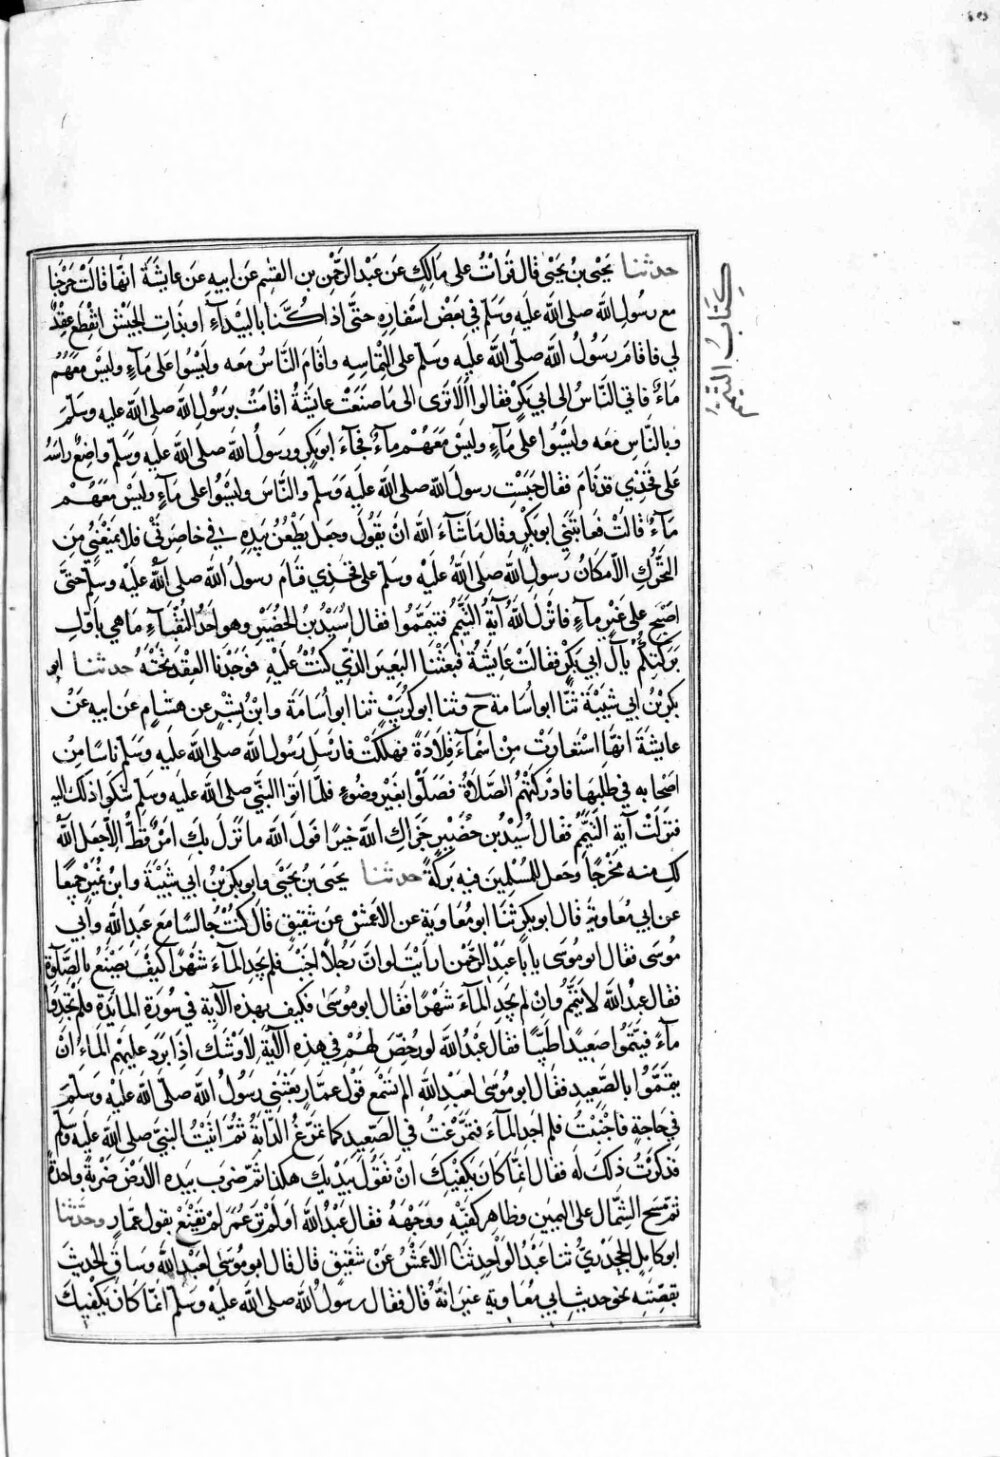 كتاب التيمم
حدثنا يحيى بن يحيى قال قرات على مالك عن عبد الرحمن بن القسم عن ابيه عن عايشة انها قالت خرجنا
مع رسول الله صلى الله عليه وسلم في بعض اسفاره حتى اذا كنا بالبيدآء او بذات الجيش انقطع عقد
لي فاقام رسول الله صلى الله عليه وسلم على التماسه واقام الناس معه وليسوا على مآء وليس معهم
مآء فاتى الناس الى ابي بكر فقالوا ألا ترى الى ما صنعت عايشة اقامت برسول الله صلى الله عليه وسلم
وبالناس معه وليسوا على مآء وليس معهم مآء فجآء ابو بكر ورسول الله صلى الله عليه وسلم واضع راسه
على فخذي قد نام فقال حبست رسول الله صلى الله عليه وسلم والناس وليسوا على مآء وليس معهم
مآء قالت فعاتبني ابو بكر وقال ما شآء الله ان يقول وجعل يطعن بيده في خاصرتي فلا يمنعني من
التحرك الا مكان رسول الله صلى الله عليه وسلم على فخذي فنام رسول الله صلى الله عليه وسلم حتى
اصبح على غير مآء فانزل الله آية التيمم فتيمموا فقال اسيد بن الحضير وهو احد النقبآء ما هي باول
بركتكم يال ابي بكر فقالت عايشة فبعثنا البعير الذي كنت عليه فوجدنا العقد تحته حدثنا ابو
بكر بن ابي شيبة ثنا ابو اسامة ح وثنا ابو كريب ثنا ابو اسامة وابن بشر عن هشام عن ابيه عن
عايشة انها استعارت من اسمآء قلادة فهلكت فارسل رسول الله صلى الله عليه وسلم ناسا من
اصحابه في طلبها فادركتهم الصلاة فصلوا بغير وضوء فلما اتوا النبي صلى الله عليه وسلم شكوا ذلك اليه
فنزلت آية التيمم فقال اسيد بن حضير جزاك الله خيرا فوالله ما نزل بك امر قط الا جعل الله
لك منه مخرجا وجعل للمسلمين فيه بركة حدثنا يحيى بن يحيى وابو بكر بن ابي شيبة وابن نمير جميعا
عن ابي معاوية قال ابو بكر ثنا ابو معاوية عن الاعمش عن شقيق قال كنت جالسا مع عبد الله وابي
موسى فقال ابو موسى يا با عبد الرحمن ارأيت لو ان رجلا اجنب فلم يجد المآء شهرا كيف يصنع بالصلوة
فقال عبد الله لا يتيمم وان لم يجد المآء شهرا فقال ابو موسى فكيف بهذه الآية في سورة المايدة فلم تجدوا
مآء فتيمموا صعيدا طيبا فقال عبد الله لو رخص لهم في هذه الآية لاوشك اذا برد عليهم المآء ان
يتيمموا بالصعيد فقال ابو موسى لعبد الله الم تسمع قول عمار بعثني رسول الله صلى الله عليه وسلم
في حاجة فاجنبت فلم اجد المآء فتمرغت في الصعيد كما تمرغ الدابة ثم اتيت النبي صلى الله عليه وسلم
فذكرت ذلك له فقال انما كان يكفيك ان تقول بيديك هكذا ثم ضرب بيده الارض ضربة واحدة
ثم مسح الشمال على اليمين وظاهر كفيه ووجهه فقال عبد الله اولم تر عمر لم يقنع بقول عمار وحدثنا
ابو كامل الجحدري ثنا عبد الواحد ثنا الاعمش عن شقيق قال قال ابو موسى لعبد الله وساق الحديث
بقصته نحو حديث ابي معاوية غير انه قال فقال رسول الله صلى الله عليه وسلم انما كان يكفيك